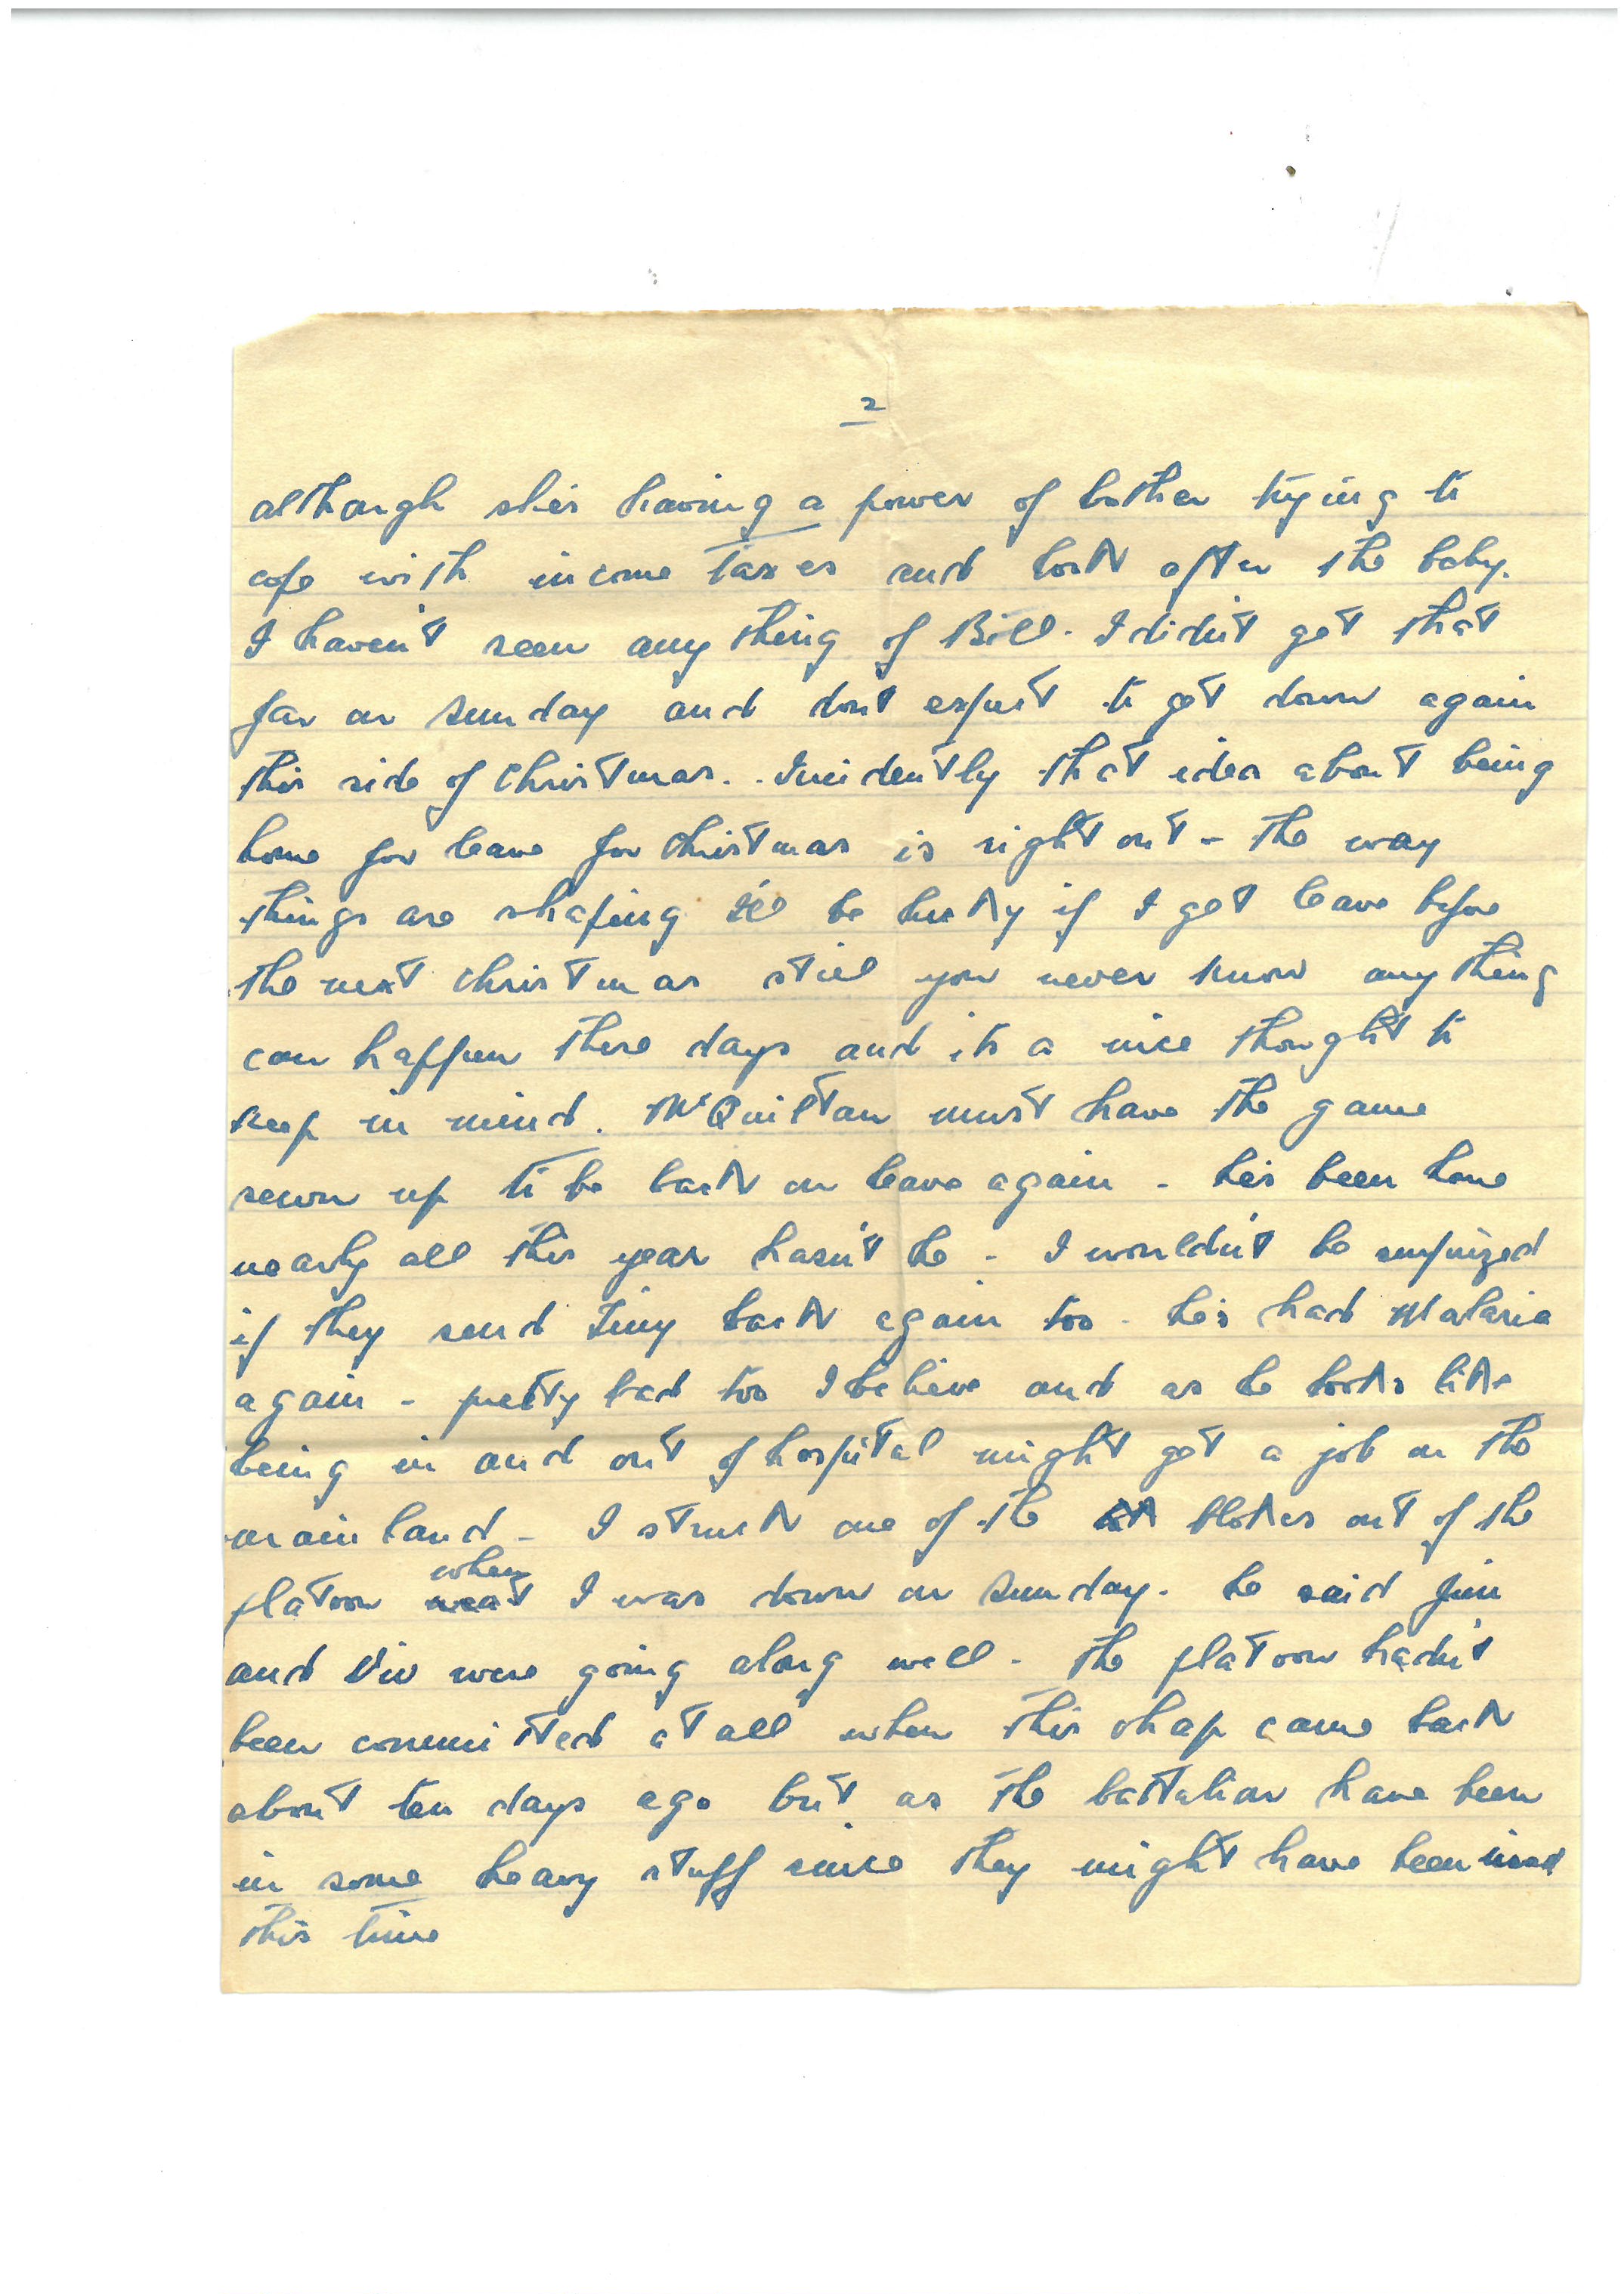 2
although she's having a power of bother trying to
cope with income taxes and look after the baby.
I haven't seen any thing of Bill. I didn't get that
far on Sunday and dont expect to get down again
this side of Christmas.. Incidently that idea about being
home for leave for Christmas is right out - the way
things are shaping I'll be lucky if I get leave before
the next Christmas still you never know any thing
can happen these days and its a nice thought to
keep in mind. McQuiltan must have the game
sewn up to be back on leave again - he's been home
nearly all this year hasn't he - I wouldn't be surprized
if they send Tiny back again too - he's had Malaria
again - pretty bad too I believe and as he looks like
being in and out of hospital might get a job on the
main land - I struck one of the blokes out of the
platoon when I was down on Sunday. he said Jim
and Viv were going along well - the platoon hadn't
been committed at all when this chap came back
about ten days ago but as the battalion have been
in some heavy stuff since they might have been used
this time